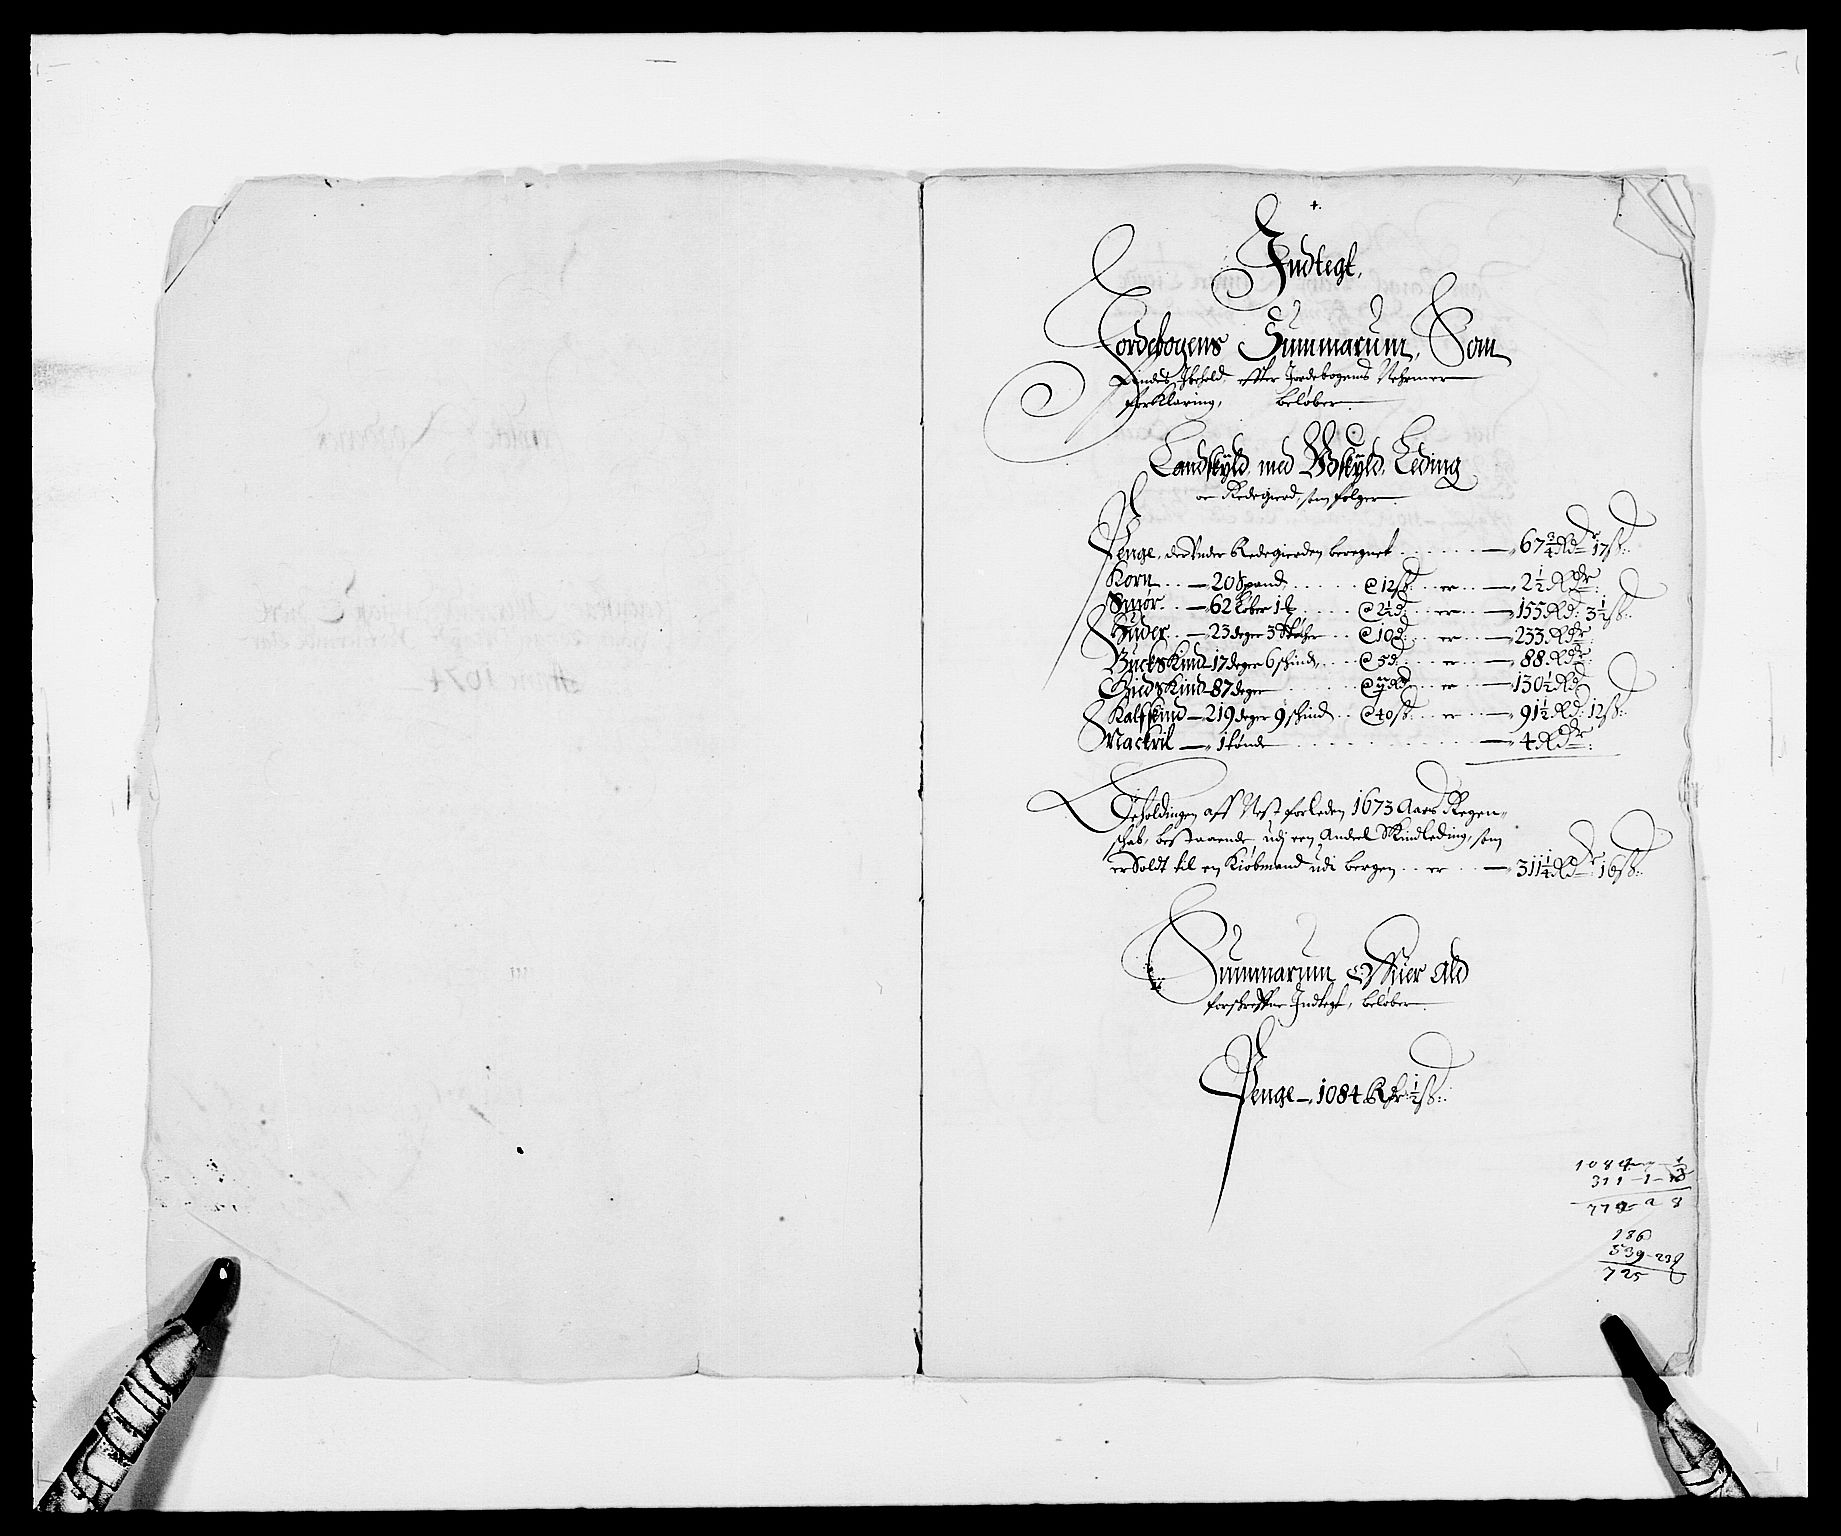 Indtegt,
Jordebogens Summarum, Som
findes Ibehold, efter Jordebogens Nehrmer
forKlaring, beløber
Landskyld med Boskyld, Leding
oc Redegierd, som følger
Penge, derunder Redegierden beregnet ...... — 67¾ Rdr 17 ß:
Korn .. — 20 Spand ..... @ 12 ß .. er .. — 2½ Rdr
Smør .. — 62 Løber 1 ... @ 2½ d: .. er .. — 155 Rd: 3½ ß:
Huder .. — 23 deger 3 .. @ 10 d: .. er .. — 233 Rdr
BuckSkind — 17 deger 6 schind, ... @ 5 d: ... er .. — 88 Rdr
GiedSkind — 87 deger ..... @ Rd .. er .. — 130½ Rd
Kalfskind — 219 deger 9 schind .. @ 40 ß .. er .. — 91½ Rd: 12 ß:
Mackril — 1 tønde ........... — 4 Rdr
Beholdingen aff Nest forleden 1673 Aars Regen-
schab, bestaaende udj een Andeel Skindleding, som
er Soldt til en Kiøbmand udi bergen .. er .. — 311¼ Rdr 16 ß:
Summarum offuer Ald
forschreffne Indtegt, beløber
Penge — 1084 Rdr ½ ß:
1084 — ½
311 — 1 — 16
772 - 2 8
186
539 - 23
725